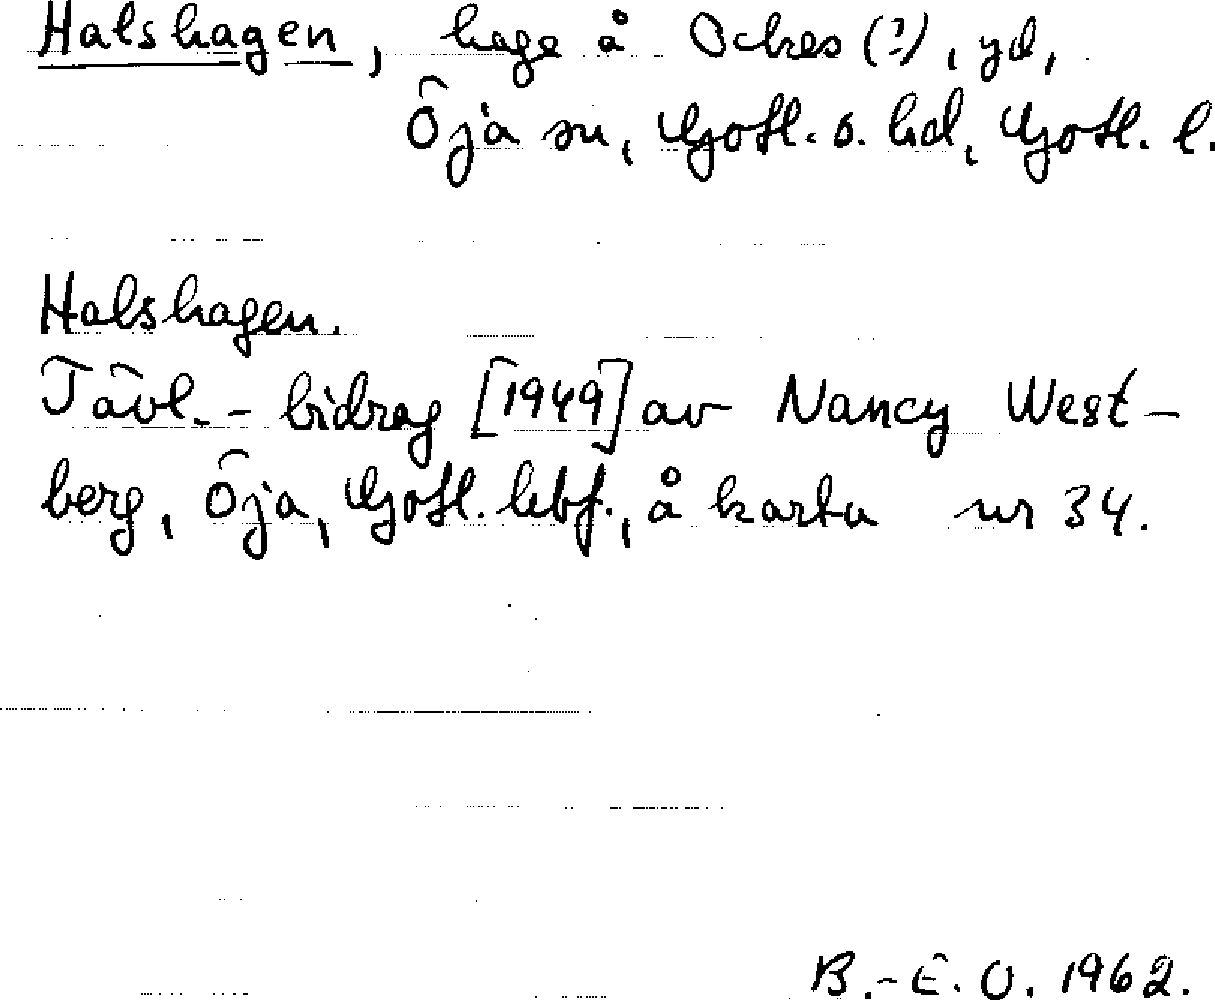 Halshagen, hage å Ockes (?), gd,
Öja sn, Gotl. s. hd, Gotl. l.
Halshagen.
Tävl.- bidrag [1949] av Nancy West-
berg, Öja, Gotl. lvbf., å karta nr 34.
B.-E. O. 1962.